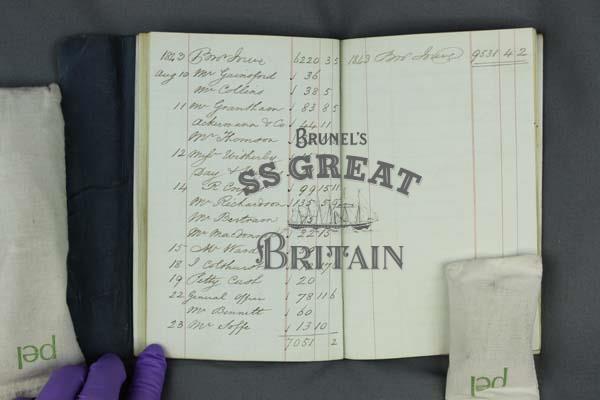 1843 Bro.t Over 6220 3 5
Aug 10 Mr Gainsford 36
Mr Collins 38 5
11 Mr Grantham 83 8 5
Ackermann & Co 44 11
Mr Thomson
12 Messrs Witherby
Day &
14 R. Coo 99 15 11
Mr Richardson 135 5
Mr Bertram 15
Mr MacDonn 22 15
15 Mr Ward
18 J Colthurst
19 Petty Cash 20
22 General Office 78 11 6
Mr Bennett 60
23 Mr 13 10
7051 2
1843 Bro.t Over 9531 4 2
BRUNEL'S
SS GREAT
BRITAIN
pel
pel